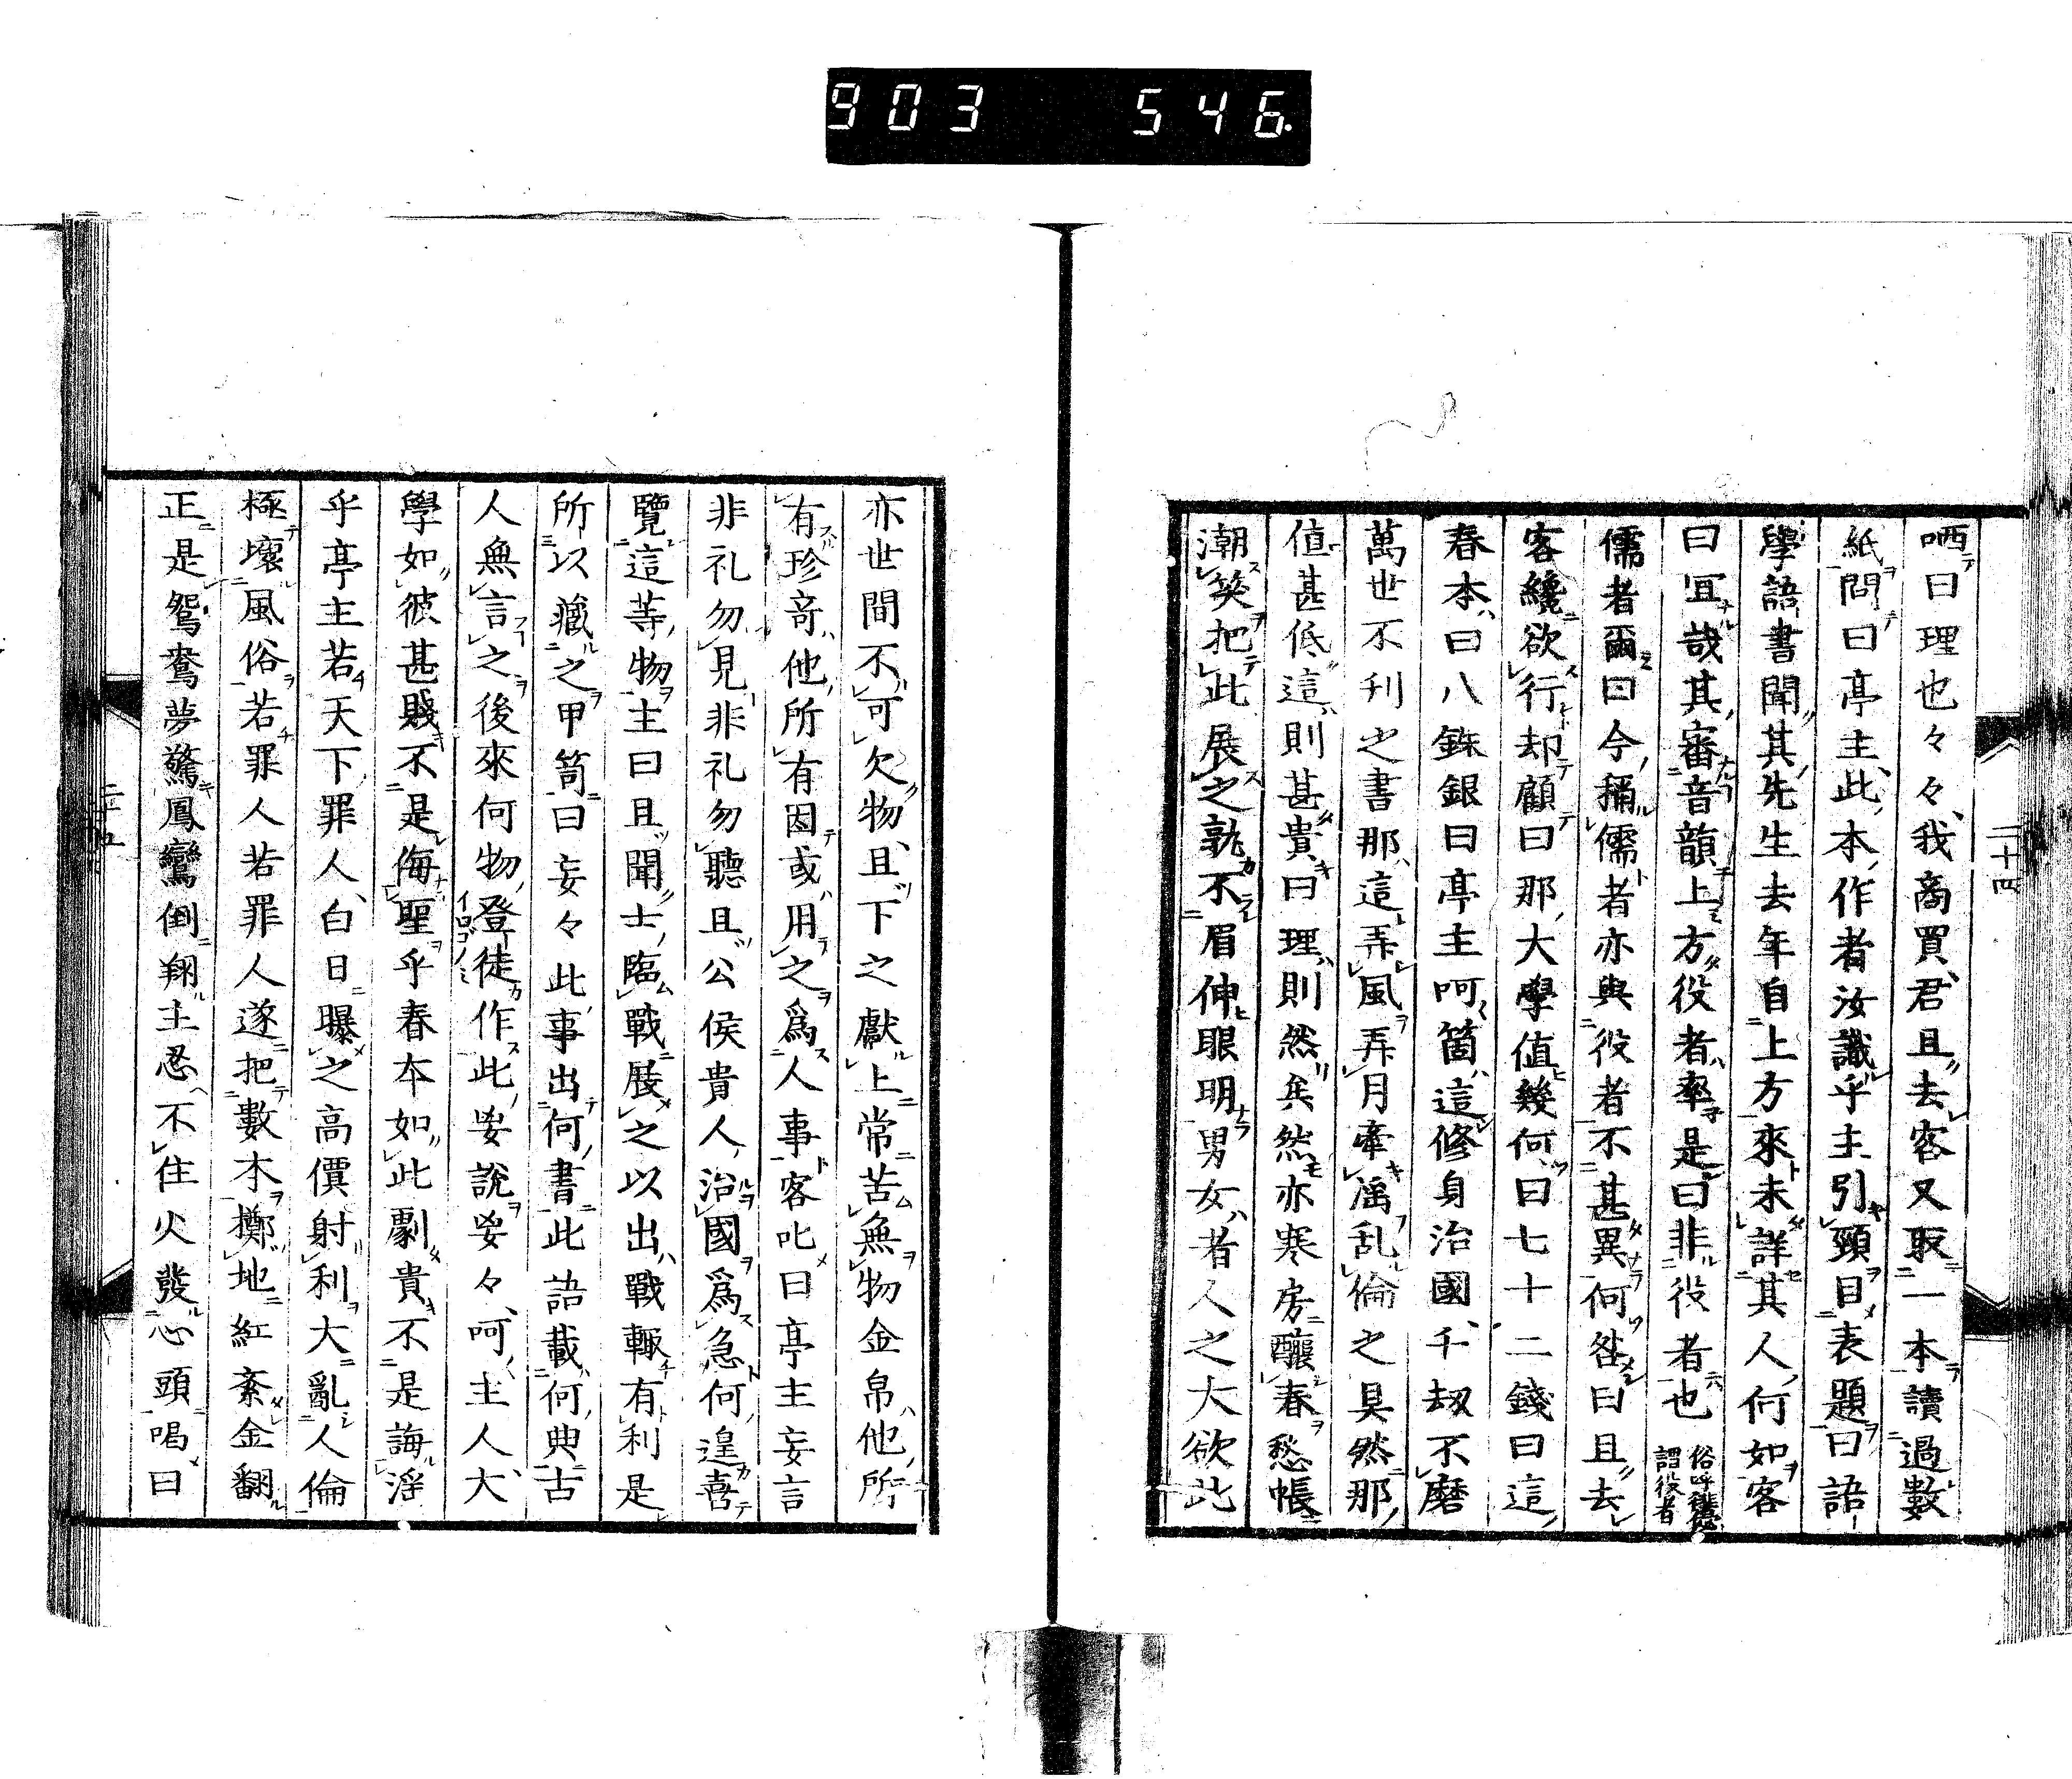 903 546.
哂曰理也々々我商買君且去客又取一本讀過數
紙問曰亭主此本作者汝識乎主引頸目表題曰語
學語書聞其先生去年自上方來未詳其人何如客
曰冝哉其審音韻上方役者率是曰非役者也
儒者爾曰今稱儒者亦與役者不甚異何咎曰且去
客纔欲行却顧曰那大學値幾何曰七十二錢曰這
春本曰八銖銀曰亭主呵箇這修身治國千刼不磨
萬世不刊之書那這弄風弄月牽滛乱倫之具然那
値甚低這則甚貴曰理則然矣然亦寒房釀春愁帳
潮笑把此展之孰不眉伸眼明男女者人之大欲此
二十四
亦世間不可欠物且下之獻上常苦無物金帛他所
有珍竒他所有因或用之爲人事客叱曰亭主妄言
非礼勿見非礼勿聽且公侯貴人治國爲急何遑喜
覽這等物主曰且聞士臨戰展之以出戰輙有利是
所以藏之甲笥曰妄々此事出何書此語載何典古
人無言之後來何物登徒作此妄說妄々呵主人大
學如彼甚賤不是侮聖乎春本如此劇貴不是誨淫
乎亭主若天下罪人白日曝之高價射利大亂人倫
極壞風俗若罪人若罪人遂把數本擲地紅紊金翻
正是鴛鴦夢驚鳳鸞倒翔主忍不住火發心頭喝曰
二十五